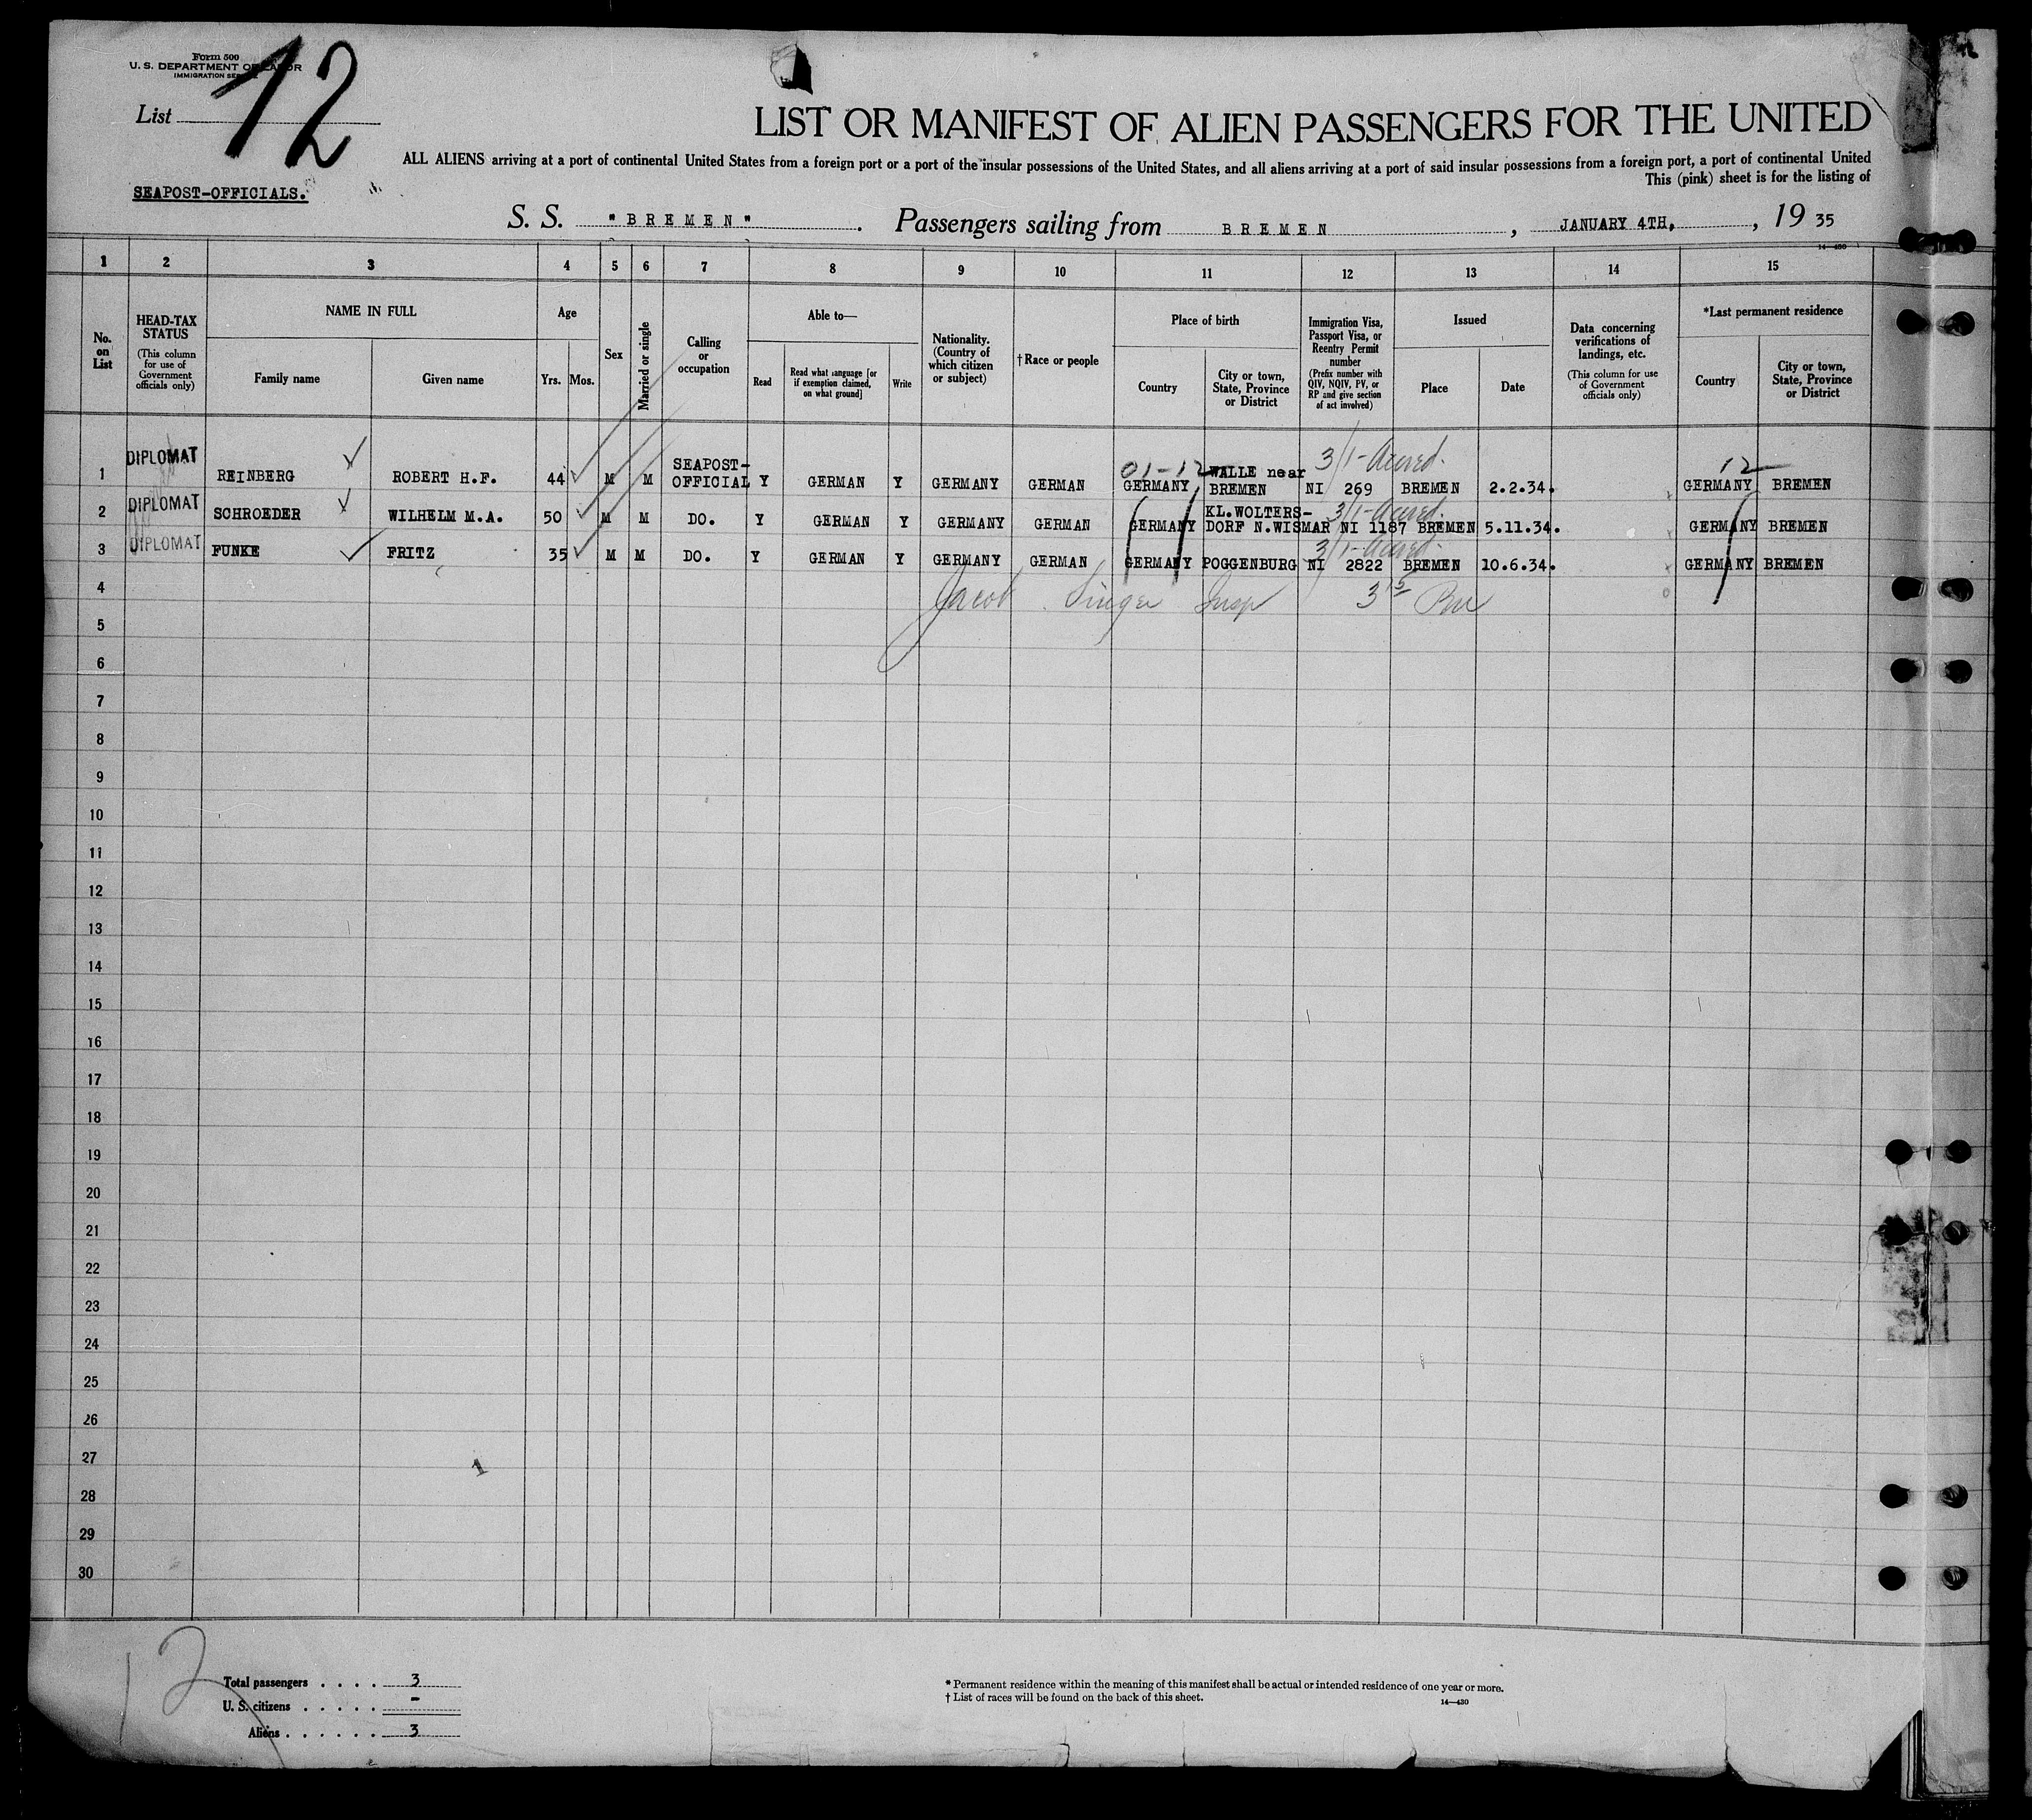 Form 500
U. S. DEPARTMENT OF LABOR
IMMIGRATION SERVICE
List 12
LIST OR MANIFEST OF ALIEN PASSENGERS FOR THE UNITED
ALL ALIENS arriving at a port of continental United States from a foreign port or a port of the insular possessions of the United States, and all aliens arriving at a port of said insular possessions from a foreign port, a port of continental United
This (pink) sheet is for the listing of
SEAPOST-OFFICIALS.
S. S. "BREMEN". Passengers sailing from BREMEN, JANUARY 4TH, , 19 35
14-430
1 2 3 4 5 6 7 8 9 10 11 12 13 14 15
No. on List
HEAD-TAX STATUS (This column for use of Government officials only)
NAME IN FULL
Family name Given name
Age
Yrs. Mos.
Sex
Married or single
Calling or occupation
Able to—
Read Read what language [or if exemption claimed, on what ground] Write
Nationality. (Country of which citizen or subject)
†Race or people
Place of birth
Country City or town, State, Province or District
Immigration Visa, Passport Visa, or Reentry Permit number (Prefix number with QIV, NQIV, PV, or RP and give section of act involved)
Issued
Place Date
Data concerning verifications of landings, etc. (This column for use of Government officials only)
*Last permanent residence
Country City or town, State, Province or District
01-12 3/1- 12
1 DIPLOMAT REINBERG ROBERT H.F. 44 M M SEAPOST-OFFICIAL Y GERMAN Y GERMANY GERMAN GERMANY WALLE near BREMEN NI 269 BREMEN 2.2.34. GERMANY BREMEN
3/1-
2 DIPLOMAT SCHROEDER WILHELM M.A. 50 M M DO. Y GERMAN Y GERMANY GERMAN GERMANY KL.WOLTERS-DORF N.WISMAR NI 1187 BREMEN 5.11.34. GERMANY BREMEN
3/1-
3 DIPLOMAT FUNKE FRITZ 35 M M DO. Y GERMAN Y GERMANY GERMAN GERMANY POGGENBURG NI 2822 BREMEN 10.6.34. GERMANY BREMEN
4 Jacob Singer Insp
5
6
7
8
9
10
11
12
13
14
15
16
17
18
19
20
21
22
23
24
25
26
27
28
29
30
12
Total passengers . . . . 3
U. S. citizens . . . . . -
Aliens . . . . . . 3
* Permanent residence within the meaning of this manifest shall be actual or intended residence of one year or more.
† List of races will be found on the back of this sheet.
14-430